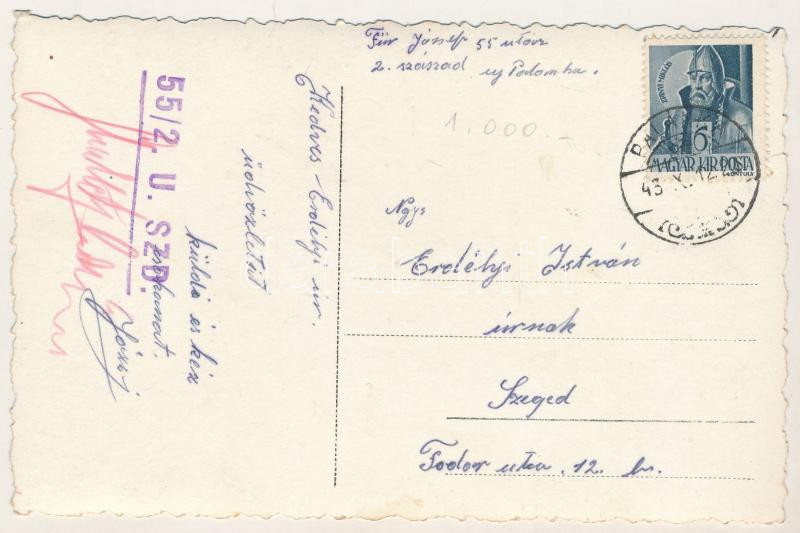 Für József 55 utász
2. szászad uj Padomha.
1.000.-
ZRINYI MIKLÓS
6
MAGYAR KIR. POSTA
43 X. 12
Kedves Erdélyi úr.
üdvözletét
küldi és kéz
csókomat.
József
55/2. U. SZD.
Ngys
Erdélyi István
úrnak
Szeged
Fodor utca. 12. sz.